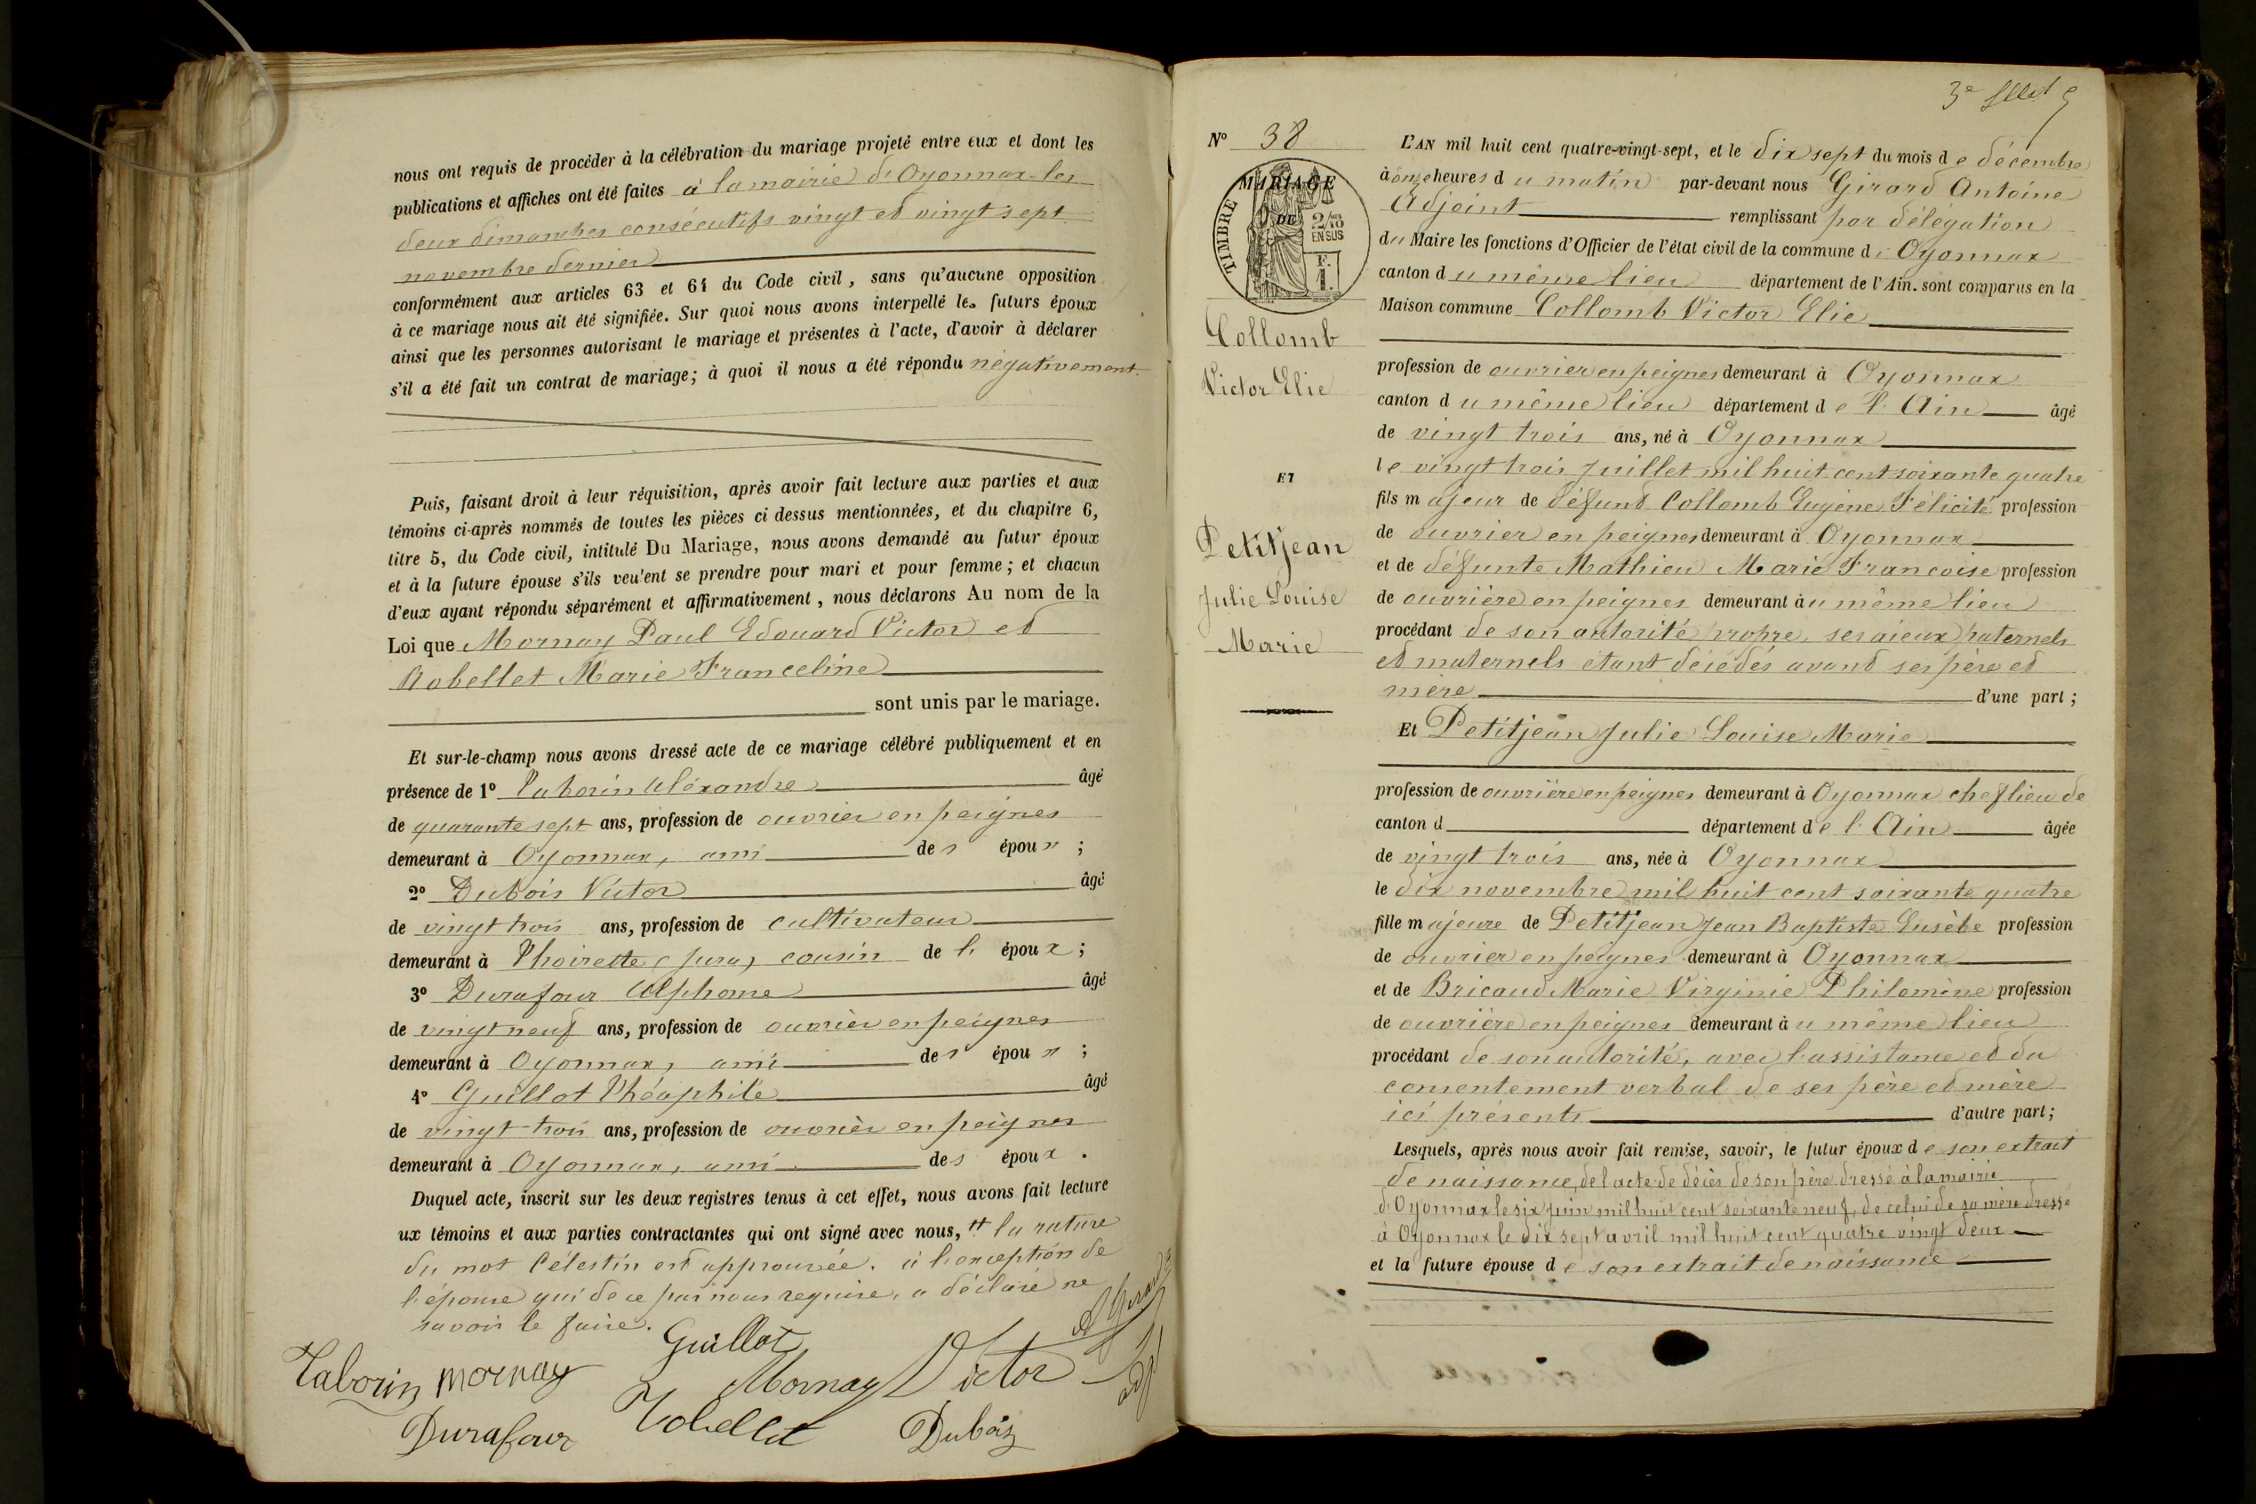 nous ont requis de procéder à la célébration du mariage projeté entre eux et dont les
publications et affiches ont été faites à la mairie d'Oyonnax les
deux dimanches consécutifs vingt et vingt sept
novembre dernier
conformément aux articles 63 et 64 du Code civil, sans qu'aucune opposition
à ce mariage nous ait été signifiée. Sur quoi nous avons interpellé les futurs époux
ainsi que les personnes autorisant le mariage et présentes à l'acte, d'avoir à déclarer
s'il a été fait un contrat de mariage; à quoi il nous a été répondu négativement.
Puis, faisant droit à leur réquisition, après avoir fait lecture aux parties et aux
témoins ci-après nommés de toutes les pièces ci dessus mentionnées, et du chapitre 6,
titre 5, du Code civil, intitulé Du Mariage, nous avons demandé au futur époux
et à la future épouse s'ils veulent se prendre pour mari et pour femme; et chacun
d'eux ayant répondu séparément et affirmativement, nous déclarons Au nom de la
Loi que Mornay Paul Edouard Victor et
Robellet Marie Franceline
sont unis par le mariage.
Et sur-le-champ nous avons dressé acte de ce mariage célébré publiquement et en
présence de 1° Taborin Alexandre âgé
de quarante sept ans, profession de ouvrier en peignes
demeurant à Oyonnax, ami des époux ;
2° Dubois Victor âgé
de vingt trois ans, profession de cultivateur
demeurant à Thoirette (Jura) cousin de l' époux ;
3° Durafour Alphonse âgé
de vingt neuf ans, profession de ouvrier en peignes
demeurant à Oyonnax, ami des époux ;
4° Guillot Théophile âgé
de vingt trois ans, profession de ouvrier en peignes
demeurant à Oyonnax, ami des époux .
Duquel acte, inscrit sur les deux registres tenus à cet effet, nous avons fait lecture
ux témoins et aux parties contractantes qui ont signé avec nous, la rature
du mot Célestin est approuvée. à l'exception de
l'épouse qui de ce par nous requise, a déclaré ne
savoir le faire.
Guillot
A Girard
Taborin Mornay Mornay Victor adjt
Durafour Robellet Dubois
3e fllet
N° 38
TIMBRE
MARIAGE
DE 2/10
EN SUS
F.
1.
Collomb
Victor Elie
ET
Petitjean
Julie Louise
Marie
L'AN mil huit cent quatre-vingt-sept, et le dix sept du mois de décembre
à onze heures du matin par-devant nous Girard Antoine
Adjoint remplissant par délégation
du Maire les fonctions d'Officier de l'état civil de la commune d' Oyonnax
canton du même lieu département de l'Ain. sont comparus en la
Maison commune Collomb Victor Elie
profession de ouvrier en peignes demeurant à Oyonnax
canton du même lieu département de l'Ain âgé
de vingt trois ans, né à Oyonnax
le vingt trois juillet mil huit cent soixante quatre
fils majeur de défunt Collomb Eugène Félicité profession
de ouvrier en peignes demeurant à Oyonnax
et de défunte Mathieu Marie Françoise profession
de ouvrière en peignes demeurant au même lieu
procédant de son autorité propre, ses aïeux paternels
et maternels étant décédés avant ses père et
mère d'une part ;
Et Petitjean Julie Louise Marie
profession de ouvrière en peignes demeurant à Oyonnax chef lieu de
canton d département de l'Ain âgée
de vingt trois ans, née à Oyonnax
le dix novembre mil huit cent soixante quatre
fille majeure de Petitjean Jean Baptiste Eusèbe profession
de ouvrier en peignes demeurant à Oyonnax
et de Bricaud Marie Virginie Philomène profession
de ouvrière en peignes demeurant au même lieu
procédant de son autorité, avec l'assistance et du
consentement verbal de ses père et mère
ici présents d'autre part;
Lesquels, après nous avoir fait remise, savoir, le futur époux de son extrait
de naissance, de l'acte de décès de son père dressé à la mairie
d'Oyonnax le six juin mil huit cent soixante neuf, de celui de sa mère dressé
à Oyonnax le dix sept avril mil huit cent quatre vingt deux
et la future épouse de son extrait de naissance